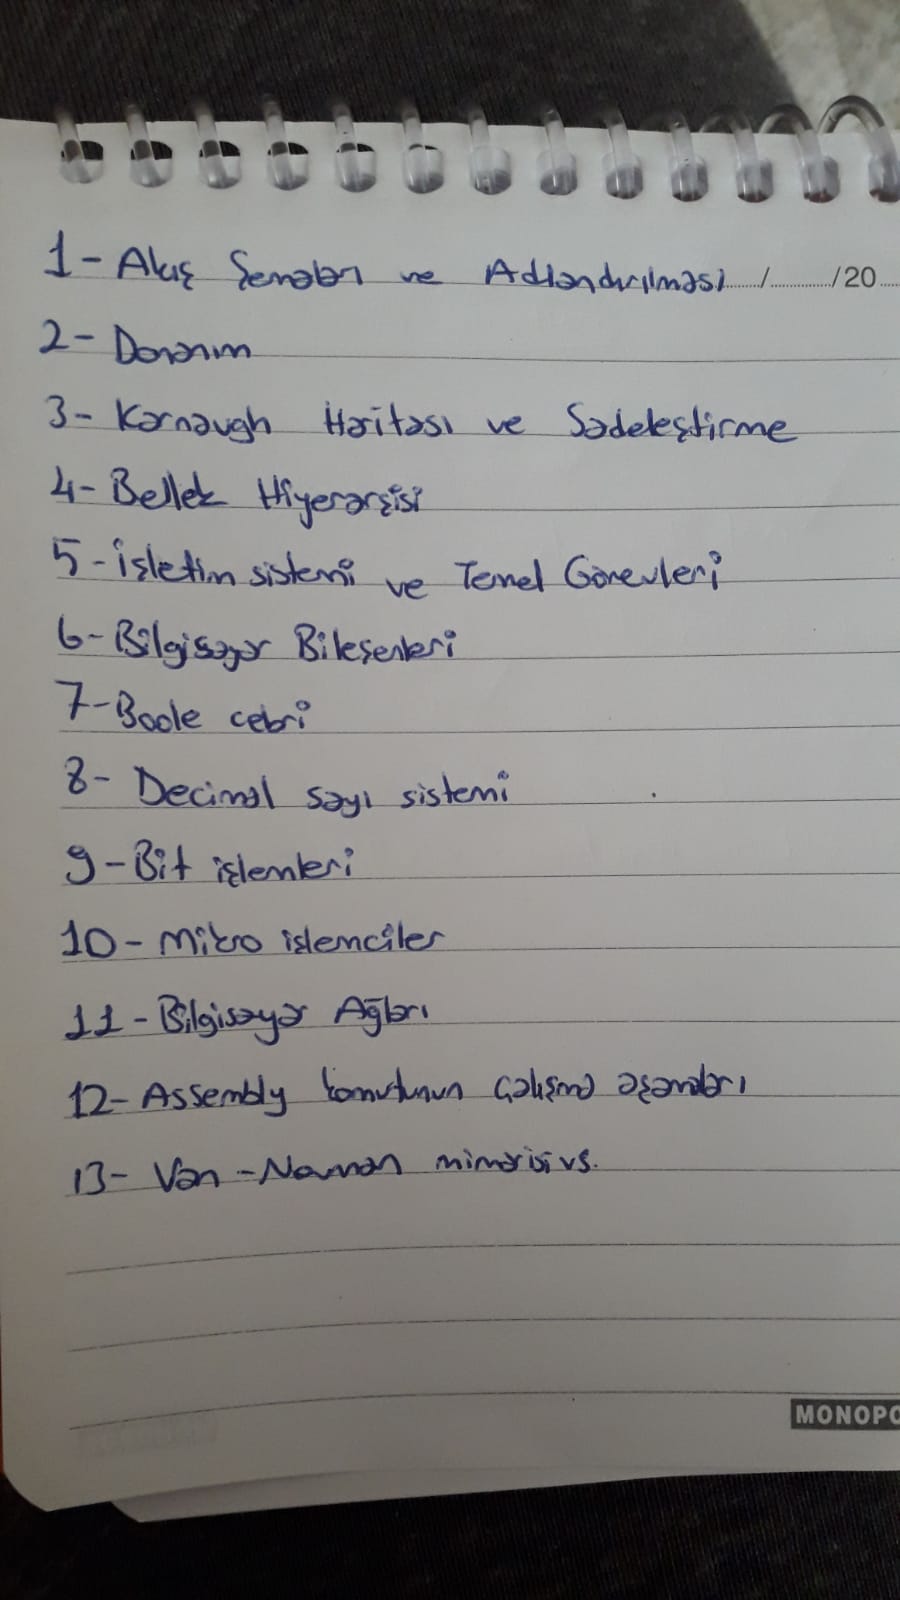 1- Akış Şemaları ve Adlandırılması ...../....../20....
2- Donanım
3- Karnaugh Haritası ve Sadeleştirme
4- Bellek Hiyerarşisi
5- işletim sistemi ve Temel Görevleri
6- Bilgisayar Bileşenleri
7- Boole cebri
8- Decimal sayı sistemi
9- Bit işlemleri
10- Mikro işlemciler
11- Bilgisayar Ağları
12- Assembly komutunun çalışma aşamaları
13- Van-Neuman mimarisi vs.
MONOPO